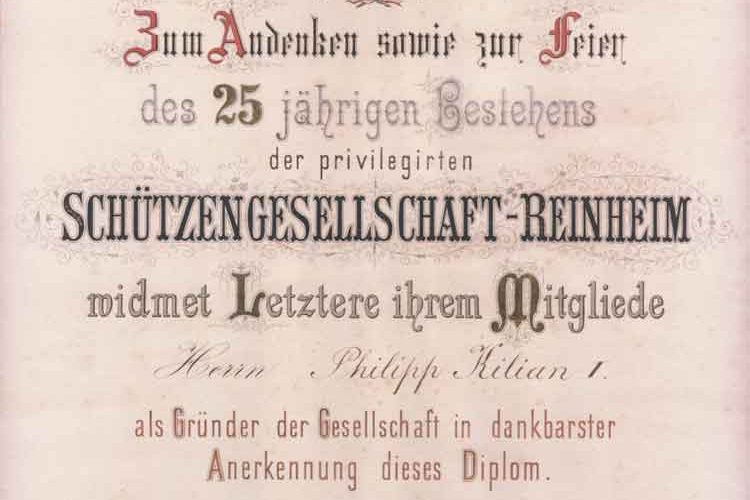 Zum Andenken sowie zur Feier
des 25 jährigen Bestehens
der privilegirten
SCHÜTZENGESELLSCHAFT-REINHEIM
widmet Letztere ihrem Mitgliede
Herrn Philipp Kilian I.
als Gründer der Gesellschaft in dankbarster
Anerkennung dieses Diplom.